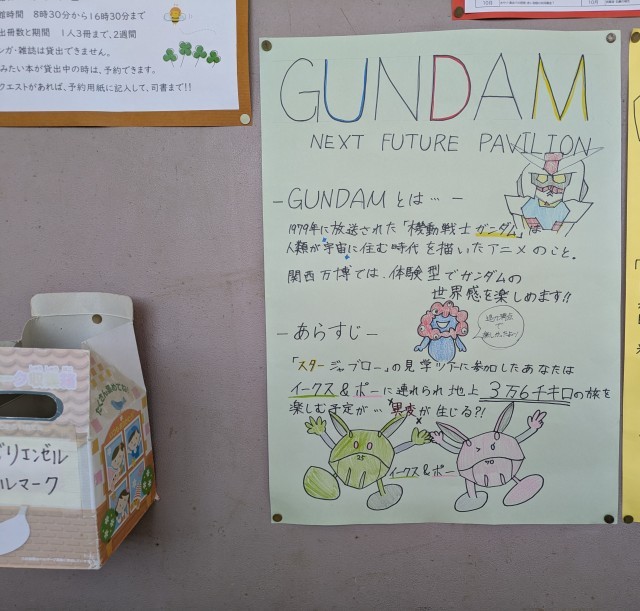 館時間 8時30分から16時30分まで
出冊数と期間 1人3冊まで、2週間
ンガ・雑誌は貸出できません。
みたい本が貸出中の時は、予約できます。
クエストがあれば、予約用紙に記入して、司書まで!!
10月
10月
GUNDAM
NEXT FUTURE PAVILION
-GUNDAMとは… -
1979年に放送された「機動戦士ガンダム」は
人類が宇宙に住む時代を描いたアニメのこと。
関西万博では、体験型でガンダムの
世界感を楽しめます!!
-あらすじ-
「スタージャブロー」の見学ツアーに参加したあなたは
イークス&ポーに連れられ地上3万6千キロの旅を
楽しむ予定が… 異変が生じる?!
イークス&ポー
リエンゼル
ルマーク